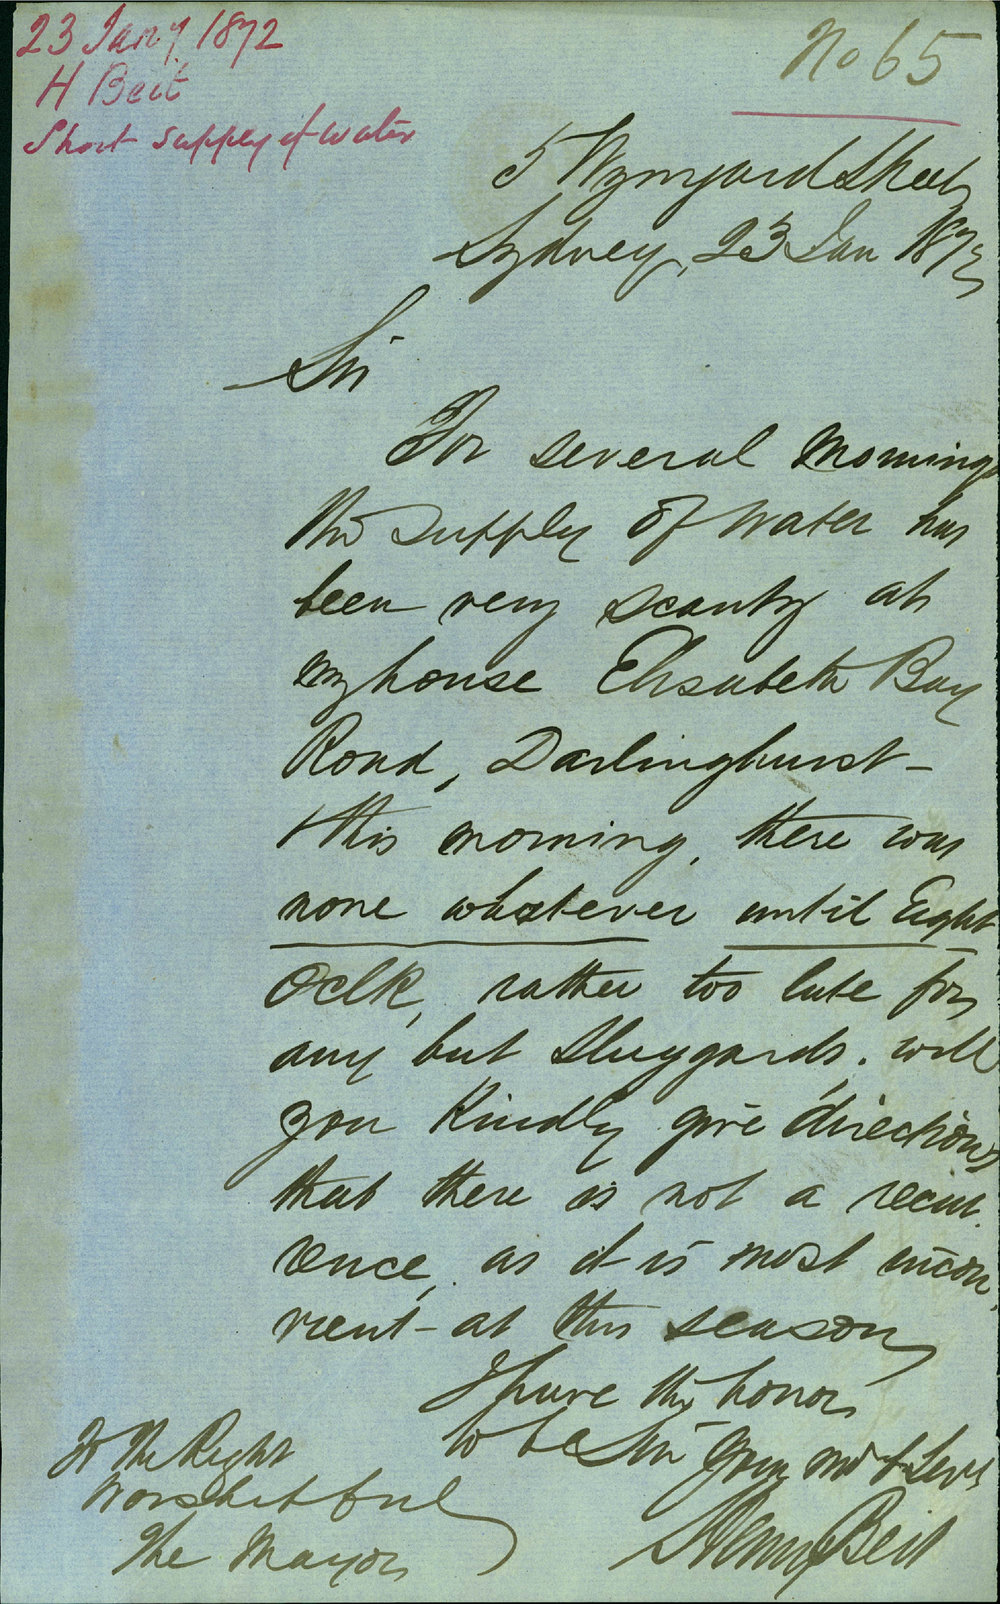 23 Jany 1872
H Beit
Short supply of water
No 65
5 Wynyard Street
Sydney, 23 Jan 1872
Sir
For several mornings
the supply of water has
been very scanty at
my house Elisabeth Bay
Road, Darlinghurst -
this morning, there was
none whatever until Eight
Oclk, rather too late for
any but Sluggards. will
you Kindly give directions
that there is not a recur
rence, as it is most incon
nient - at this season
I have the honor
to be Sir your mo t Servt
Henry Beit
To the Right
Worshipful
The Mayor